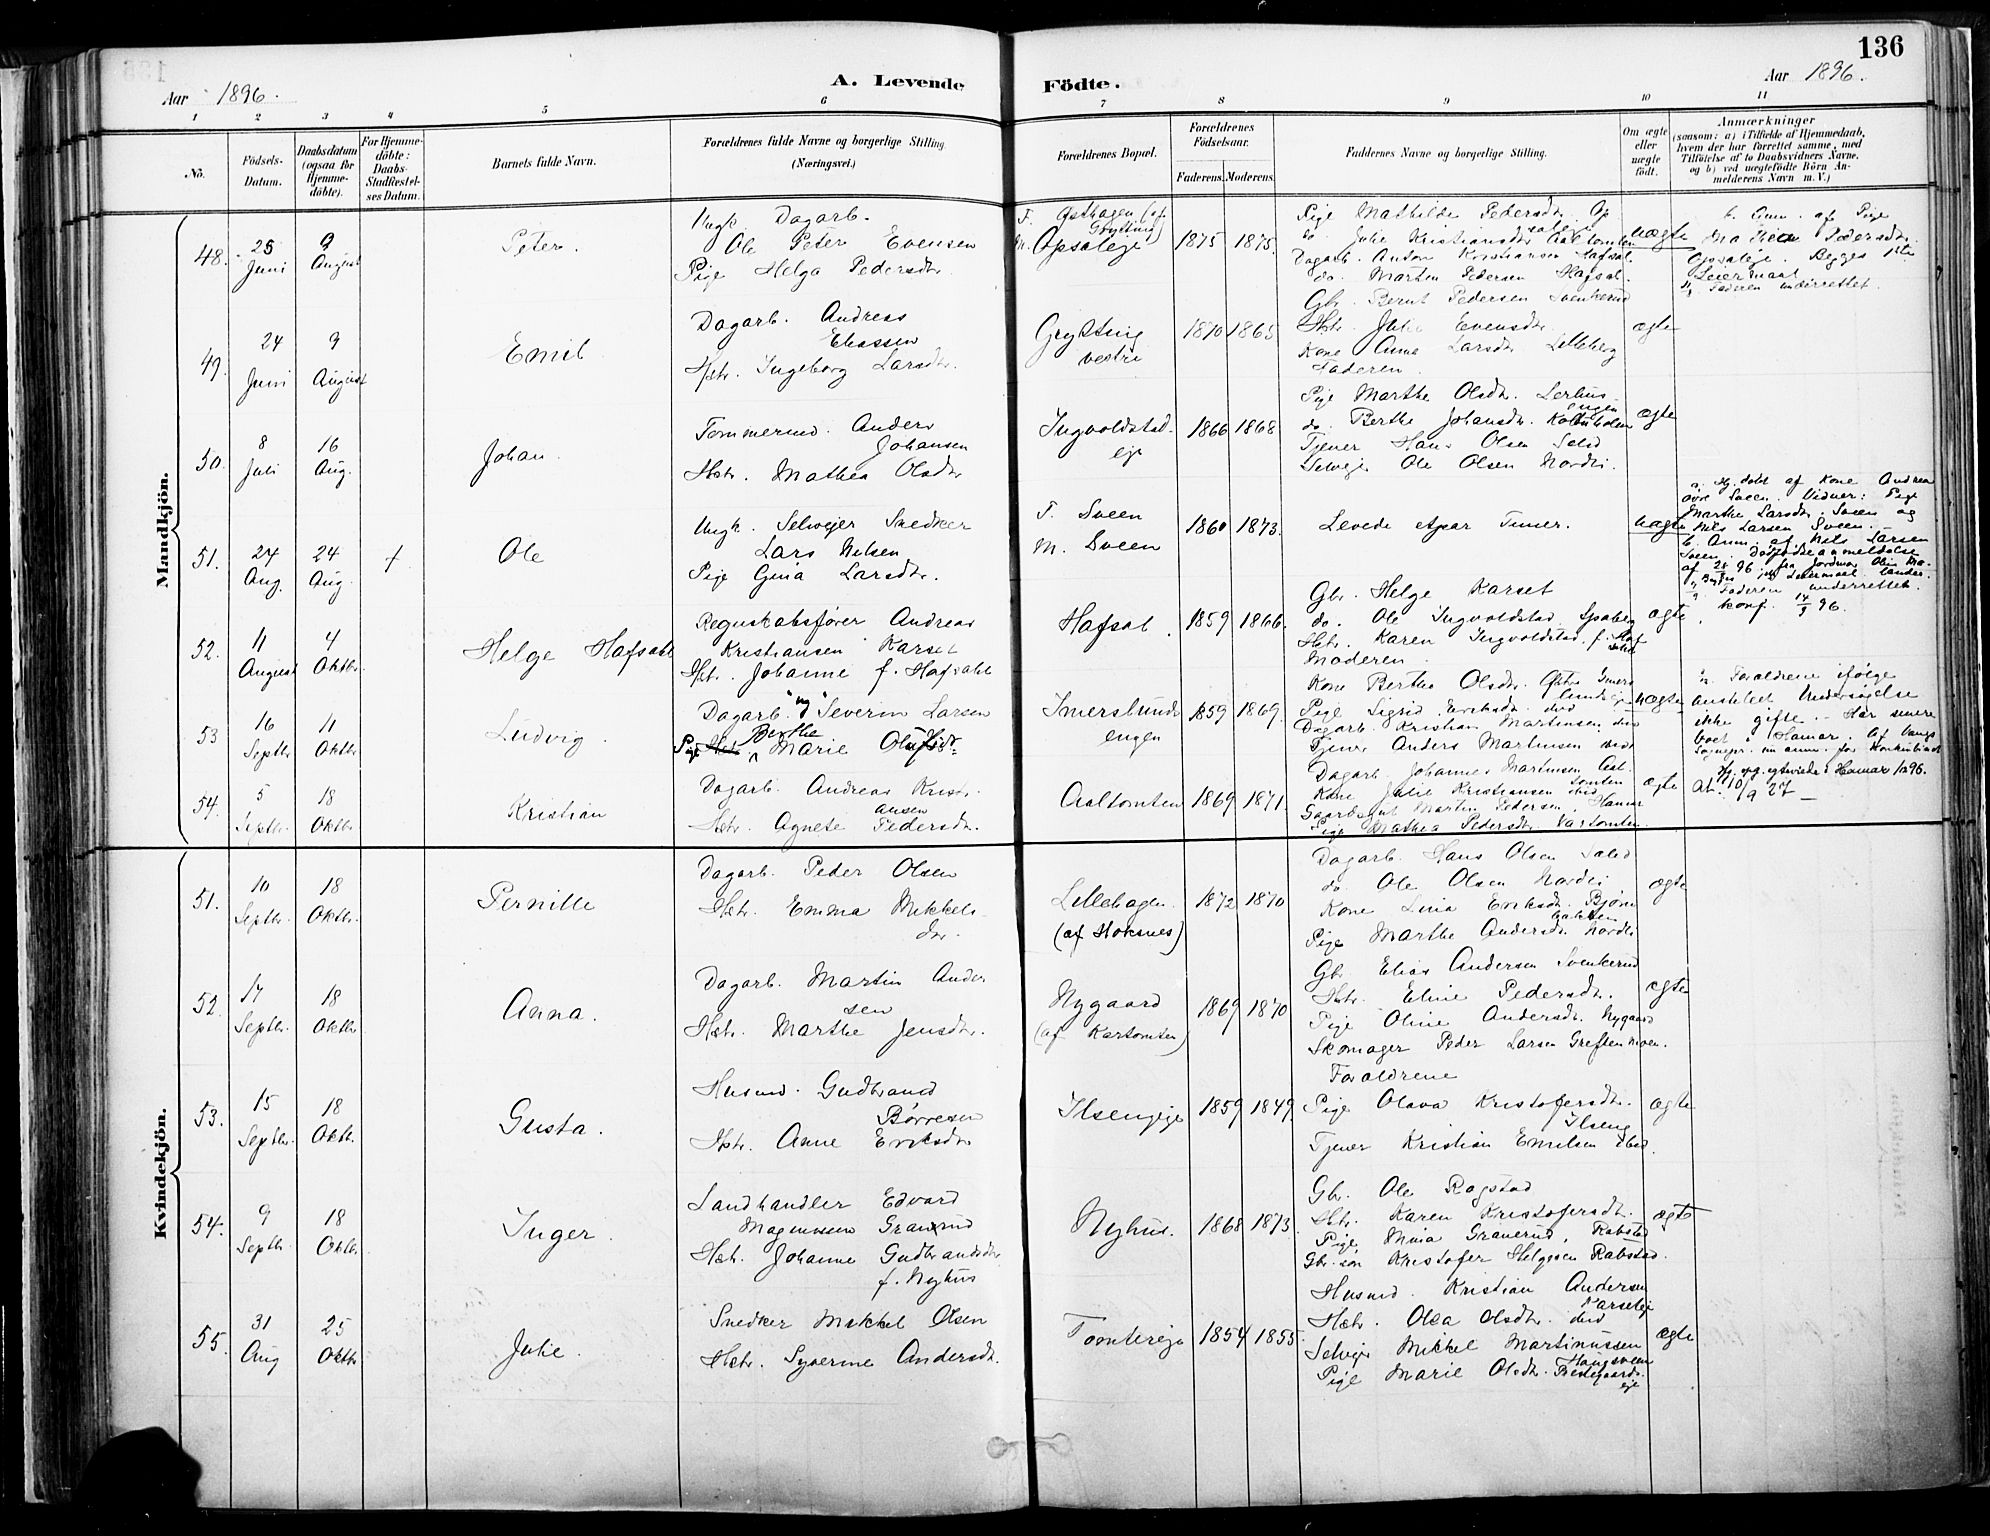 136
Aar 1896.
A. Levende
Födte.
Aar 1896.
1 2 3 4 5 6 7 8 9 10 11
No.
Födsels-Datum.
Daabsdatum (ogsaa for Hjemme-döbte).
For Hjemme-döbte: Daabs-Stadfestel-ses Datum.
Barnets fulde Navn.
Forældrenes fulde Navne og borgerlige Stilling
(Næringsvei.)
Forældrenes Bopæl.
Forældrenes Födselsaar.
Faderens. Moderens.
Faddernes Navne og borgerlige Stilling.
Om ægte eller uægte födt.
Anmærkninger
(saasom: a) i Tilfælde af Hjemmedaab,
hvem der har forrettet samme, med
Tilföielse af to Daabsvidners Navne,
og b) ved uægtefödte Börn An-
melderens Navn m. V.)
Mandkjön.
48. 25 Juni 9 August
Peter.
Ungk. Dagarb.
Ole Peter Evensen
Pige Helga Pedersdr.
M. Opsaleje
1875 1875.
Pige Mathilde Pedersdr. Op
saleje
do. Julie Kristiansdr. Aaltomten
Dagarb. Anton Kristiansen Hafsal.
do. Martin Pedersen Hafsal.
Gbr. Bernt Pedersen Svenkerud
uægte
b. Anm. af Pige
Mathea Pedersdr.
Opsaleje. Begges 1ste
Leiermaal.
Faderen underrettet.
49. 24 Juni 9 August
Emil
Dagarb. Andreas
Eliassen
Hstr. Ingeborg Larsdr.
Grytting
vestre
1870 1865
Hstr. Julie Evensdr.
Kone Anne Larsdr. Lilleberg
Faderen.
ægte
50. 8 Juli 16 Aug.
Johan.
Tømmermd. Anders
Johansen
Hstr. Mathea Olsdr.
Ingvoldstad-
eje
1866 1868
Pige Marthe Olsdr. Lerhus-
engen
do. Berthe Johansdr. Kolbuholen
Tjener Hans Olsen Salid
Selvejer Ole Olsen Nordli.
ægte
51. 24 Aug. 24 Aug. +
Ole
Ungk. Selvejer Snedker
Lars Nilsen
Pige Gina Larsdr.
F. Sveen
M. Sveen
1860 1873.
Levede et par Timer.
uægte
a. Hj. døbt af Kone Andrea
øvre Sveen. Vidner: Pige
Marthe Larsdr. Sveen og
Nils Larsen Sveen.
b. Anm. af Nils Larsen
Sveen.
Faderen underrettet.
konf. 14/9 96.
52. 11 August 4 Oktbr.
Helge Hafsahl
Regnskabsfører Andreas
Kristiansen Karset
Hstr. Johanne f. Hafsahl
Hafsal.
1859 1866.
Gbr. Helge Karset
do. Ole Ingvoldstad Spaberg
Hstr. Karen Ingvoldstad f. Haf
sahl
Moderen
ægte
53 16 Septbr. 11 Oktbr.
Ludvig.
Dagarb. Severin Larsen
Pige Berthe Marie Olufsdr.
Imerslunds
engen
1859 1869.
Kone Berthe Olsdr.
Pige Sigrid Eriksdr. ibid
Dagarb. Kristian Martinsen ibid
Tjener Anders Martinsen ibid
uægte
Forældrene ifølge
anstillet Undersøgelse
ikke gifte. Har senere
boet i Hamar. Af Vangs
Sognepr. nu anm. for Konkubinat
54. 5 Septbr. 18 Oktbr.
Kristian
Dagarb. Andreas Kristi-
ansen
Hstr. Agnete Pedersdr.
Aaltomten
1869 1871.
Dagarb. Johannes Martinsen Aal-
tomten
Kone Julie Kristiansen ibid
Gaardbgut Martin Pedersen, Hamar
Pige Mathea Pedersdr.
ægte
At. 10/9 27 –
Kvindekjön.
51. 10 Septbr. 18 Oktbr.
Pernille
Dagarb. Peder Olsen
Hstr. Emma Mikkels-
dr.
Lillehagen
(af Hoksnes)
1872 1870
Dagarb. Hans Olsen Salid
do. Ole Olsen Nordli
Kone Lina Eriksdr. Bjørne
bakken
Pige Marthe Andersdr. Nordli
ægte
52. 17 Septbr. 18 Oktbr.
Anna.
Dagarb. Martin Ander
sen
Hstr. Marthe Jensdr.
Nygaard
(af Karsomten)
1869 1870
Gbr. Elias Andersen Svenkerud
Hstr. Eline Pedersdr.
Pige Oline Andersdr. Nygaard
Skomager Peder Larsen Greftenmoen.
ægte
53. 15 Septbr. 18 Oktb.
Gusta.
Husmd. Gudbrand
Børresen
Hstr. Anne Eriksdr.
Ilsengeje
1859 1849.
Forældrene
Pige Olava Kristofersdr.
Ilseng
Tjener Kristian Emilsen ibid.
ægte
54. 9 Septbr. 18 Oktbr.
Inger.
Landhandler Edvard
Magnussen Granerud
Hstr. Johanne Gudbrandsdr.
f. Nyhus
Nyhus.
1868 1873.
Gbr. Ole Rogstad
Hstr. Karen Kristofersdr.
Pige Mina Granerud, Rabstad
Gbr.søn Kristofer Helgesen Rabstad.
ægte
55. 31 Aug 25 Oktbr
Julie.
Snedker Mikkel Olsen
Hstr. Syverine Andersdr.
Tomtereje
1854 1855.
Husmd. Kristian Andersen
Karseteje
Hstr. Olea Olsdr. ibid
Selveje Mikkel Martinussen
Haugsveen
Pige Marie Olsdr. Prestegaards-
eje
ægte